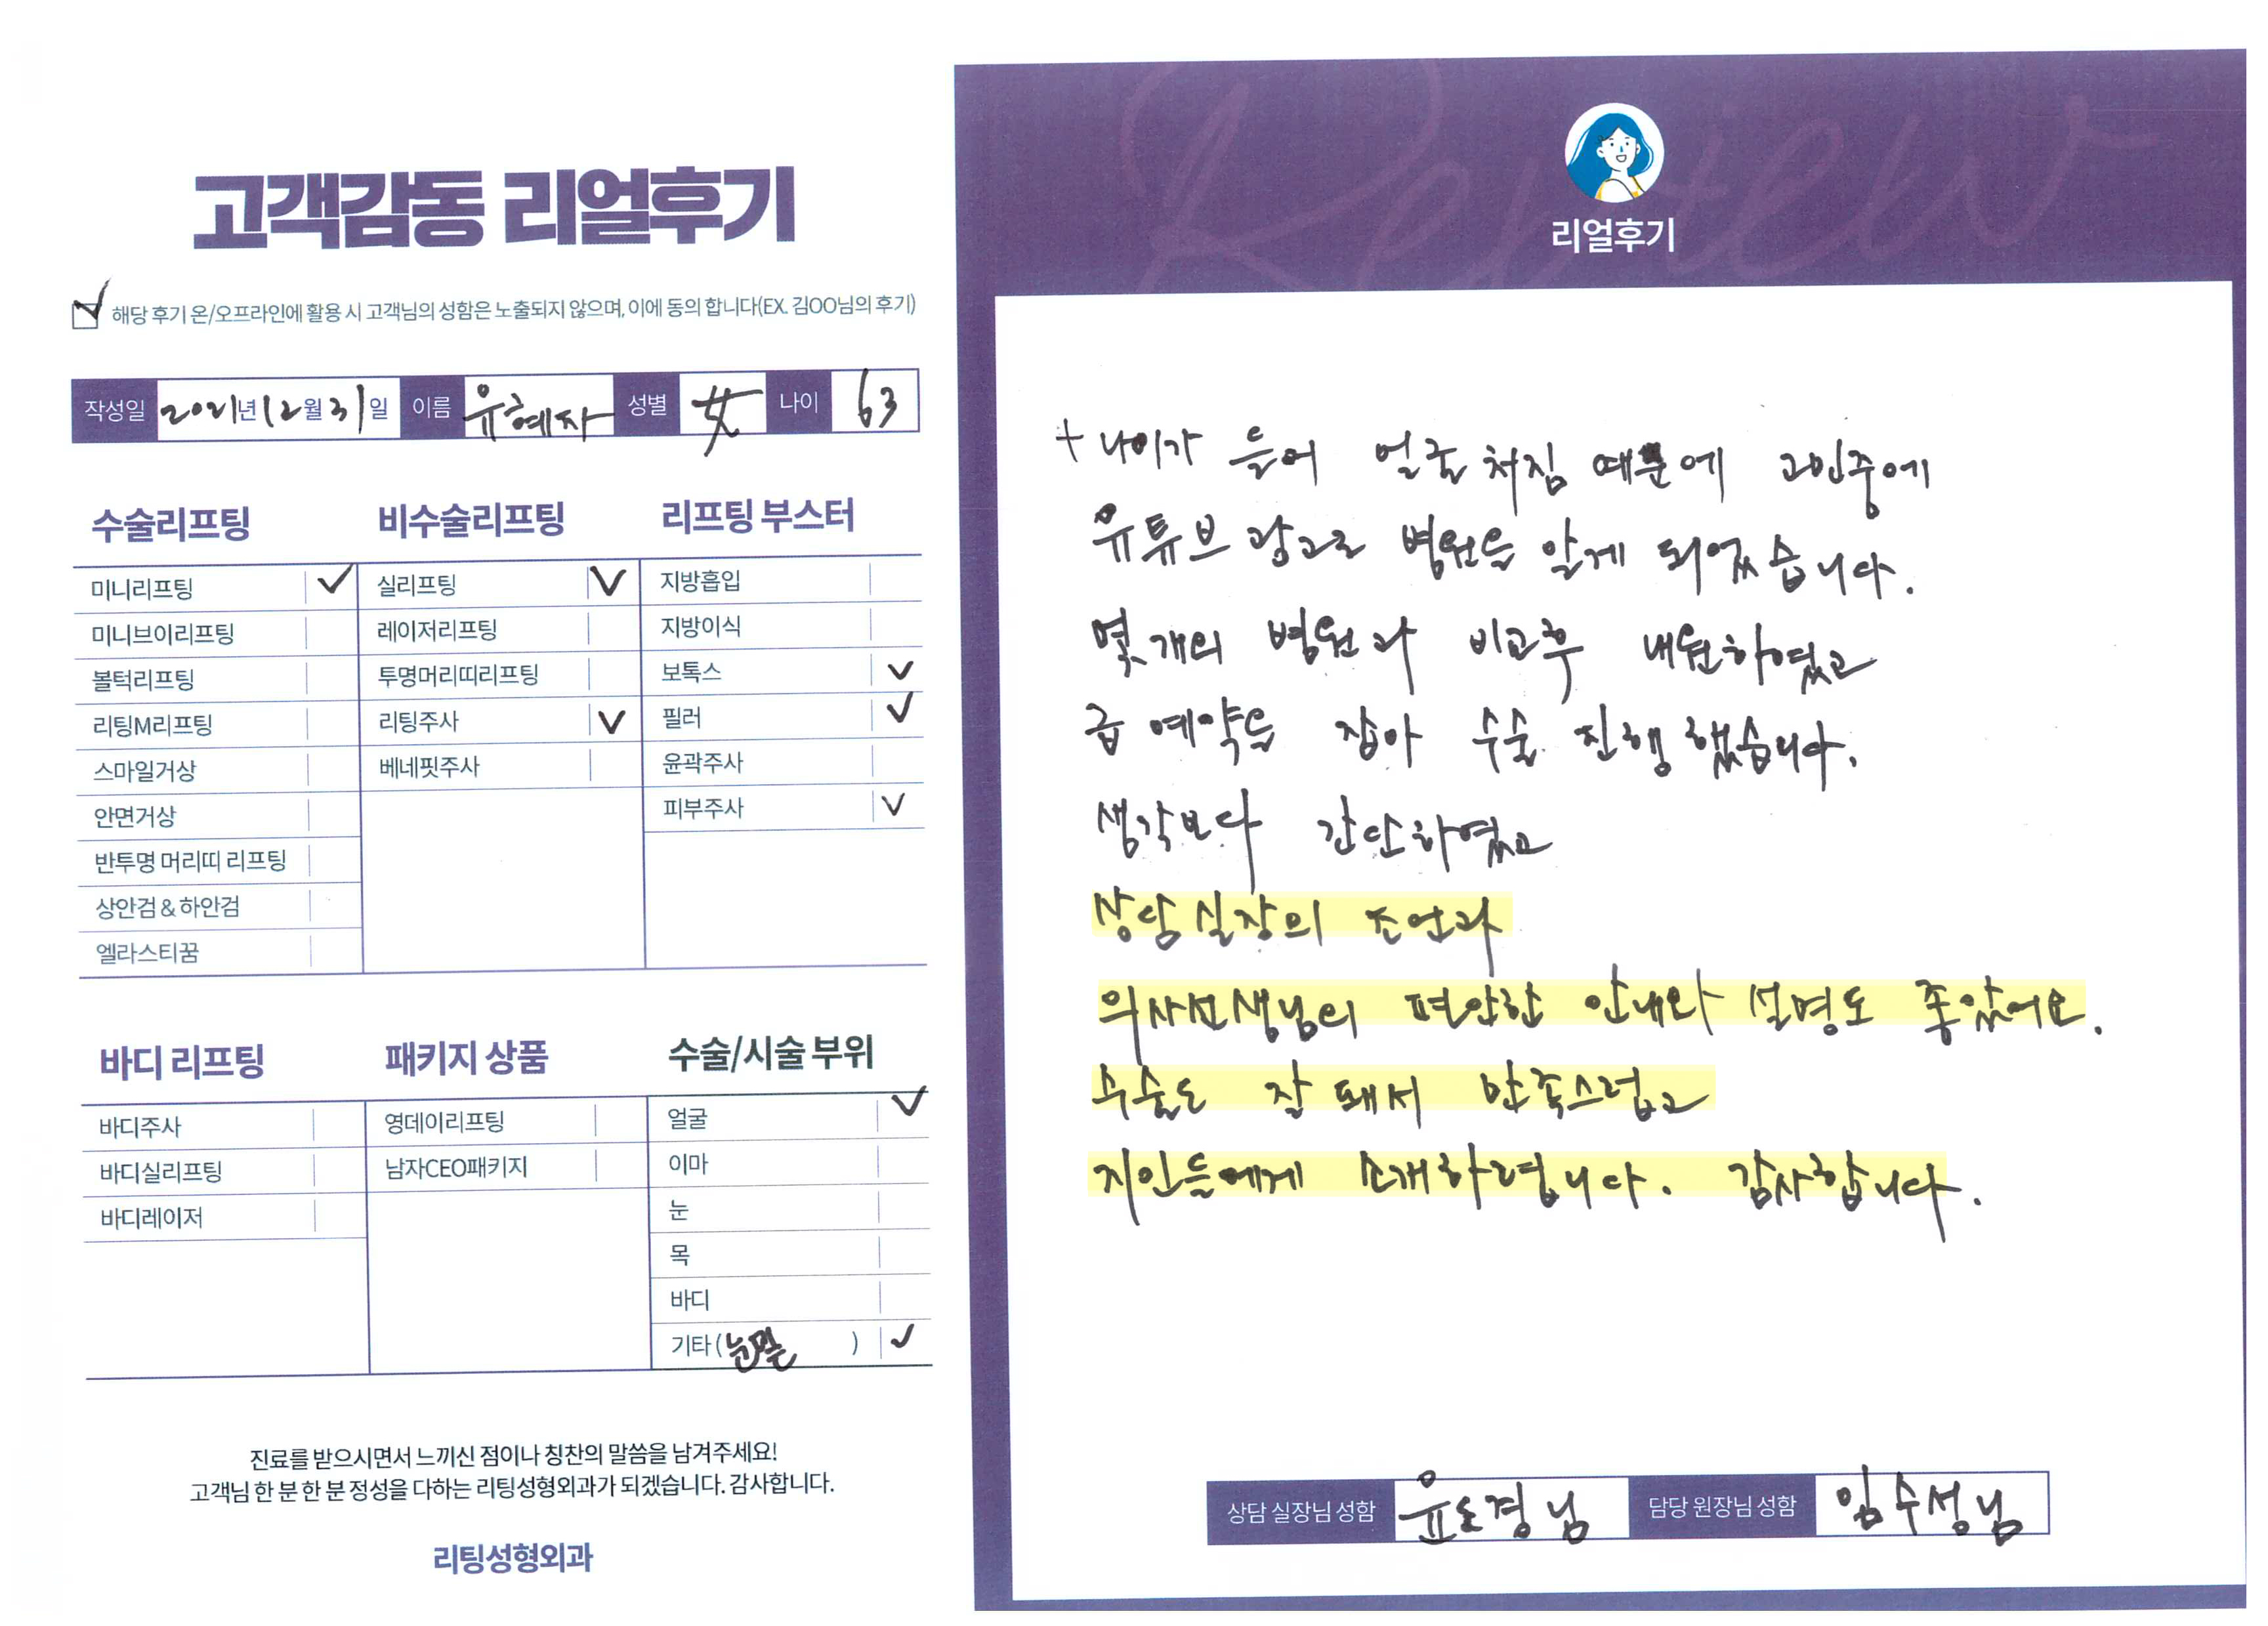 고객감동 리얼후기
해당 후기 온/오프라인에 활용 시 고객님의 성함은 노출되지 않으며, 이에 동의 합니다(EX. 김OO님의 후기)
작성일 2021년 12월 31일 이름 유혜자 성별 女 나이 63
수술리프팅
미니리프팅
미니브이리프팅
볼턱리프팅
리팅M리프팅
스마일거상
안면거상
반투명 머리띠 리프팅
상안검 & 하안검
엘라스티꿈
비수술리프팅
실리프팅
레이저리프팅
투명머리띠리프팅
리팅주사
베네핏주사
리프팅 부스터
지방흡입
지방이식
보톡스
필러
윤곽주사
피부주사
바디 리프팅
바디주사
바디실리프팅
바디레이저
패키지 상품
영데이리프팅
남자CEO패키지
수술/시술 부위
얼굴
이마
눈
목
바디
기타 (눈밑)
진료를 받으시면서 느끼신 점이나 칭찬의 말씀을 남겨주세요!
고객님 한 분 한 분 정성을 다하는 리팅성형외과가 되겠습니다. 감사합니다.
리팅성형외과
Review
리얼후기
+ 나이가 들어 얼굴 처짐 때문에 고민중에
유튜브 광고로 병원을 알게 되었습니다.
몇개의 병원과 비교후 내원하였고
급 예약을 잡아 수술 진행 했습니다.
생각보다 간단하였고
상담실장의 조언과
의사선생님의 편안한 안내와 설명도 좋았어요.
수술도 잘 돼서 만족스럽고
지인들에게 소개하렵니다. 감사합니다.
상담 실장님 성함 윤도경님 담당 원장님 성함 임수성님